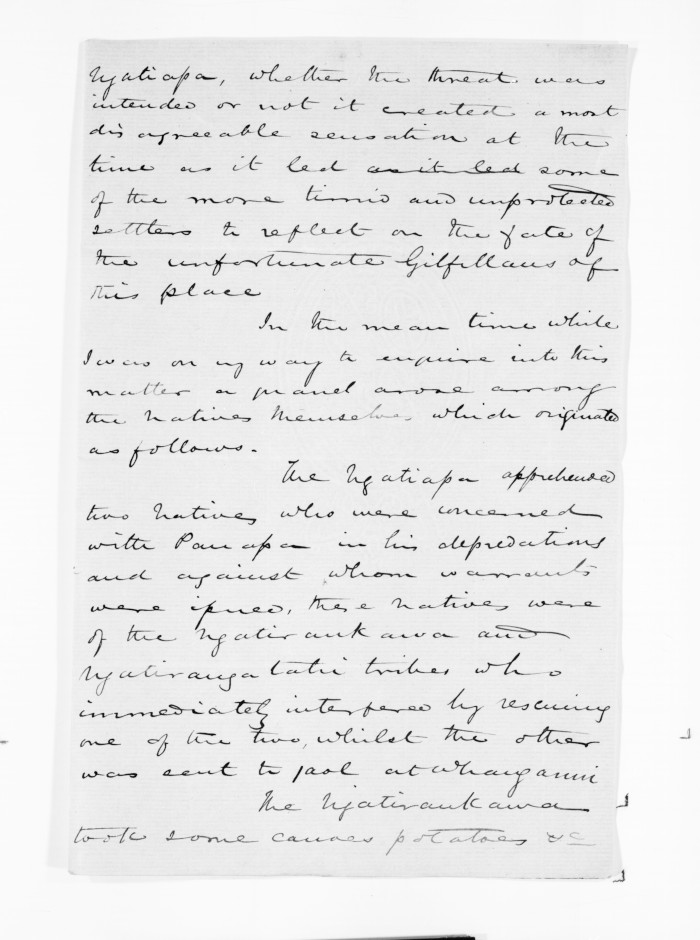 Ngatiapa, whether the threat was
intended or not it created a most
disagreeable sensation at the
time as it led as it led some
of the more timid and unprotected
settlers to reflect on the fate of
the unfortunate Gilfillans of
this place
In the mean time while
I was on my way to enquire into this
matter a quarrel arose among
the Natives themselves which originated
as follows.
The Ngatiapa apprehended
two Natives who were concerned
with Panapa in his depredations
and against whom warrants
were issued, these Natives were
of the Ngatiraukawa and
Ngatirangatahi tribes who
immediately interfered by rescuing
one of the two, whilst the other
was sent to jaol at Whanganui
The Ngatiraukawa
took some canoes potatoes &c